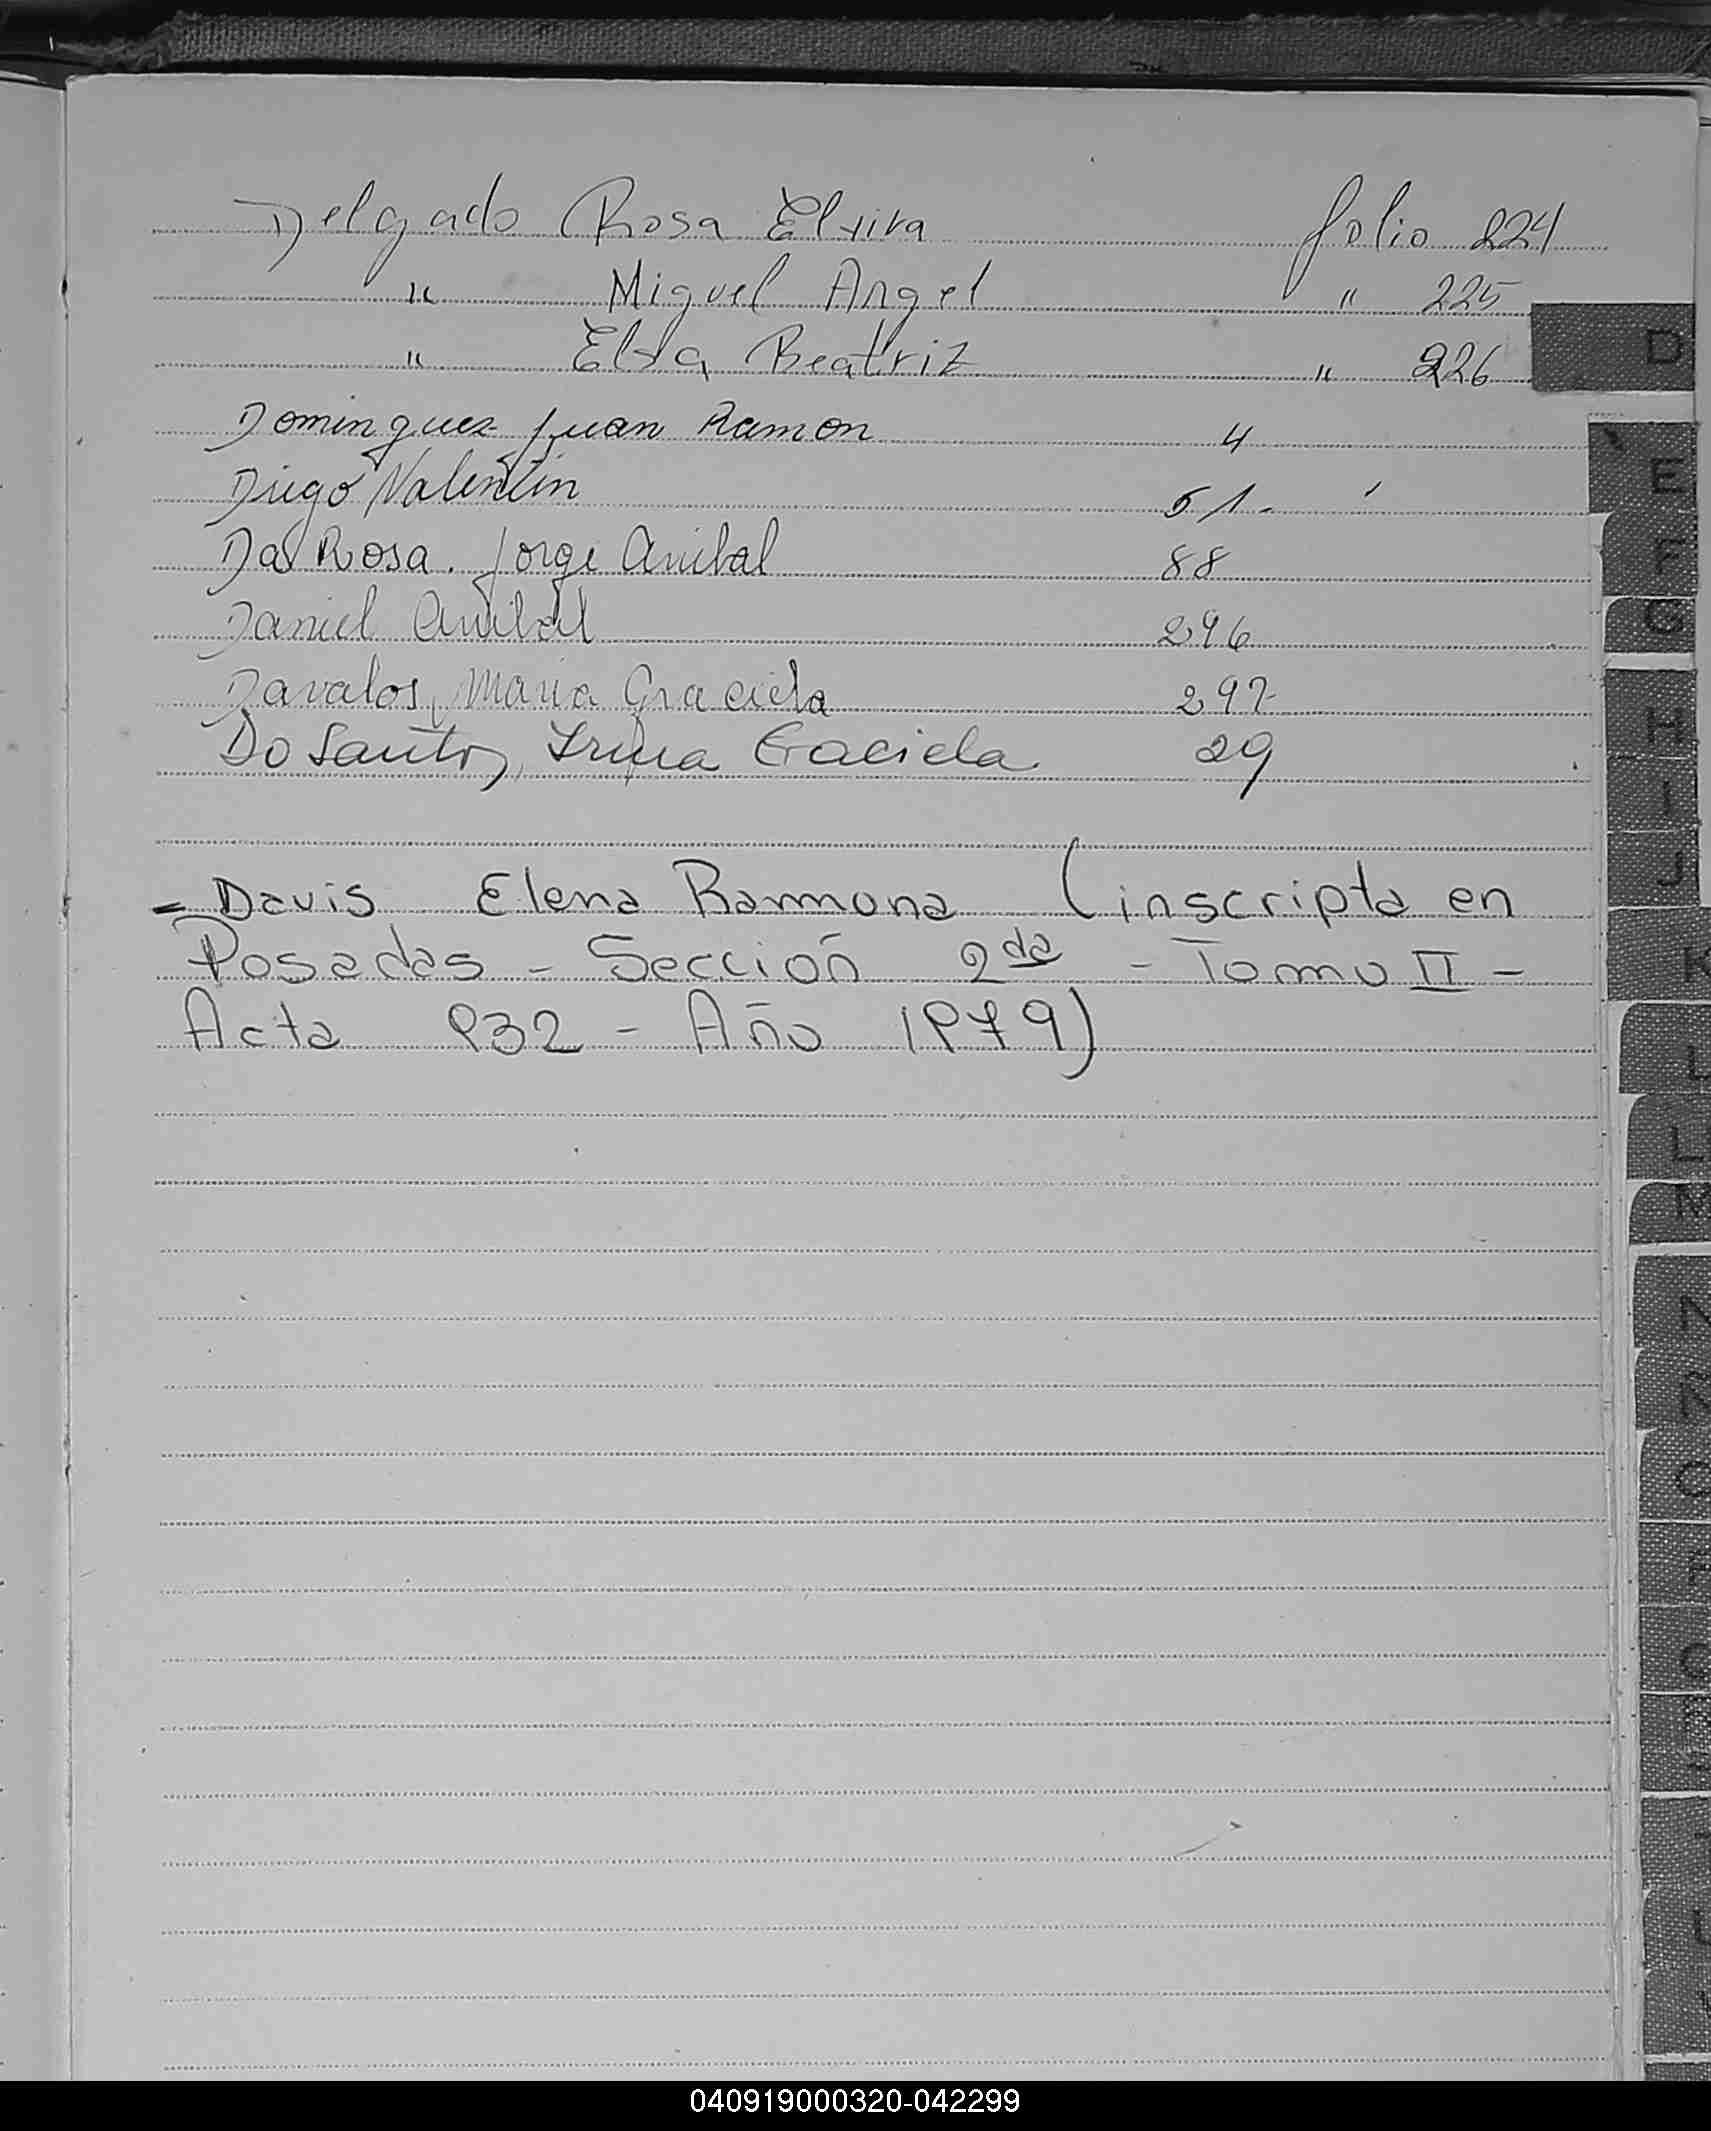 Delgado Rosa Elvira folio 224
" Miguel Angel " 225
" Elsa Beatriz " 226
Dominguez Juan Ramon 4
Diego Valentin 51.
Da Rosa. Jorge Anibal 88
Daniel Anibal 296
Davalos, Maria Graciela 297
Do Santos, Irma Graciela 29
- Davis Elena Rammona (inscripta en
Posadas - Sección 2da - Tomo II -
Acta 932 - Año 1979)
D
E
F
G
H
I
J
K
L
L
M
N
040919000320-042299